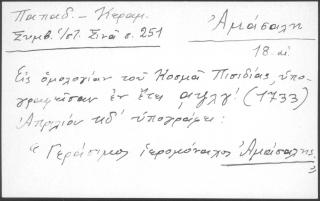 Παπαδ. - Κεραμ.
Ἀμάσαλη
Συμβ. ἱστ. Σινᾶ σ. 251
18. αἰ.
Εἰς ὁμολογίαν τοῦ Κοσμᾶ Πισιδίας, ὑπο-
γραφεῖσαν ἐν ἔτει αψλγʹ (1733)
Ἀπριλίου κδʹ ὑπογράφει:
"Γεράσιμος ἱερομόναχος Ἀμάσαλης"